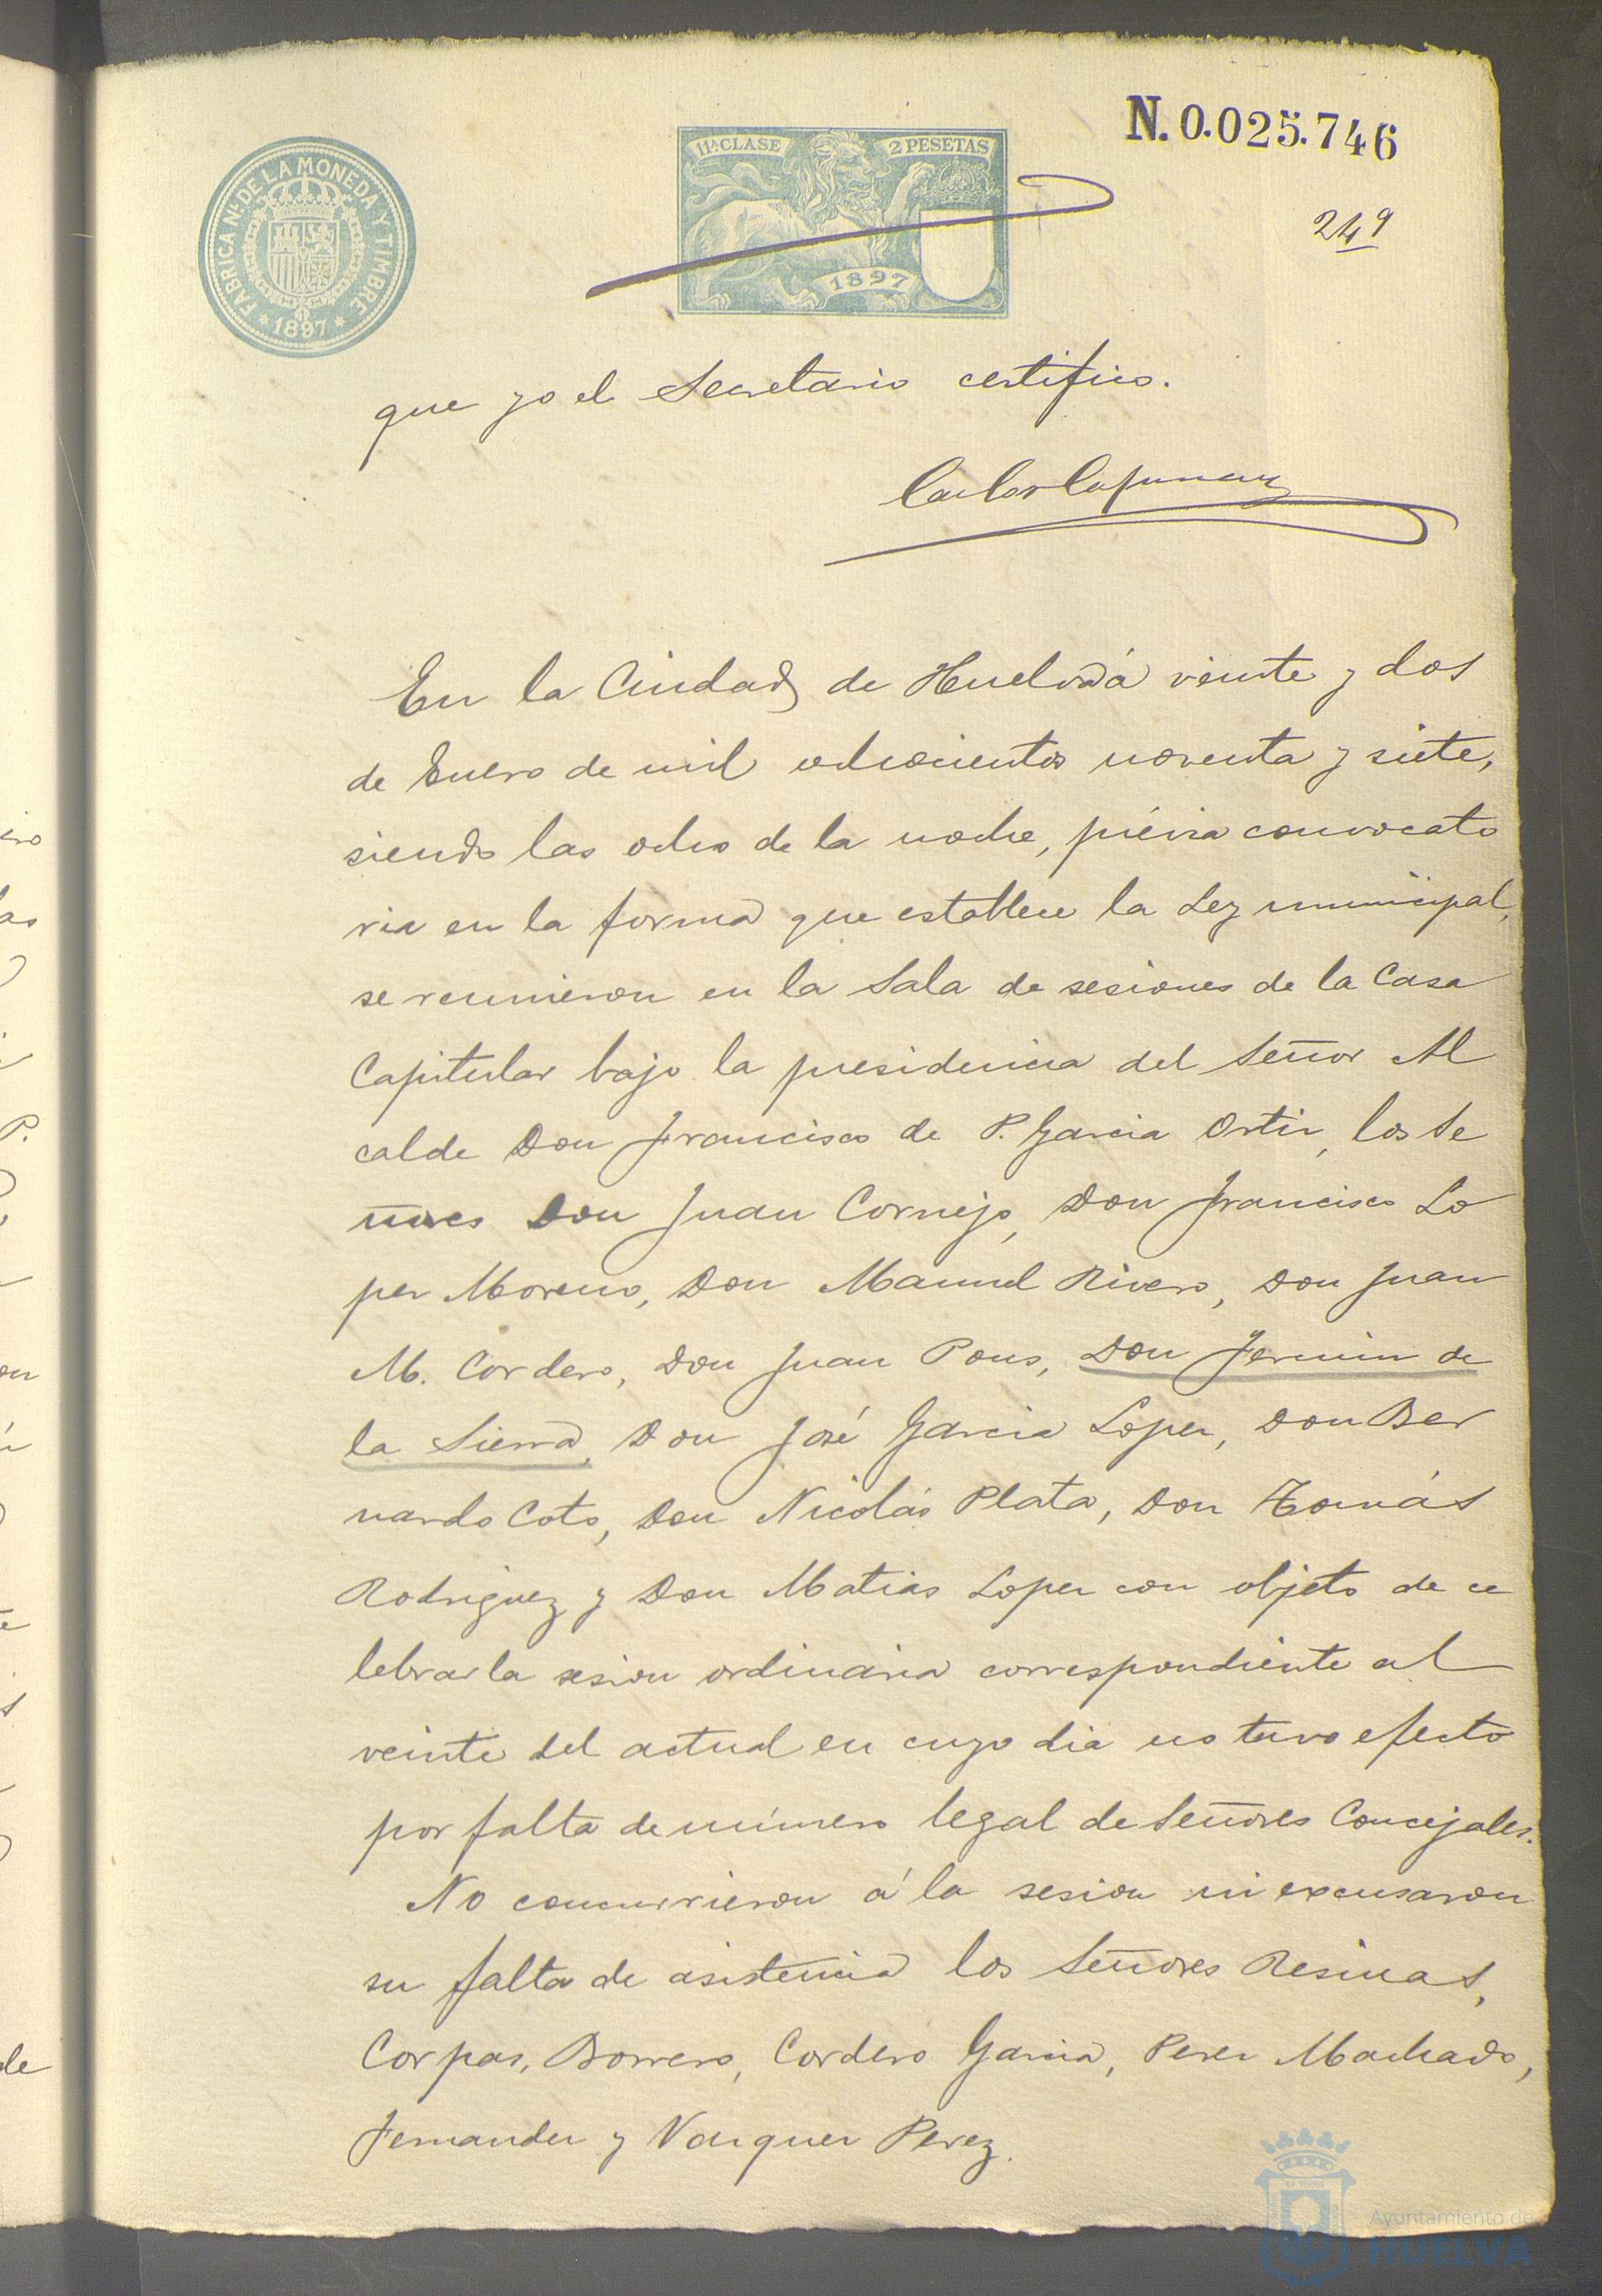 N. 0.025.746
11ª CLASE
2 PESETAS
FABRICA NL. DE LA MONEDA Y TIMBRE
* 1897 *
1897
249
que yo el Secretario certifico.
Carlos
En la Ciudad de Huelva á veinte y dos
de Enero de mil ochocientos noventa y siete,
siendo las ocho de la noche, prévia convocato
ria en la forma que establece la Ley municipal,
se reunieron en la Sala de sesiones de la Casa
Capitular bajo la presidencia del Señor Al
calde Don Francisco de P. Garcia Ortiz, los Se
ñores Don Juan Cornejo, Don Francisco Lo
pez Moreno, Don Manuel Rivero, Don Juan
M. Cordero, Don Juan Pons, Don Fermin de
la Sierra, Don José Garcia Lopez, Don Ber
nardo Coto, Don Nicolás Plata, Don Tomás
Rodriguez y Don Matias Lopez con objeto de ce
lebrar la sesion ordinaria correspondiente al
veinte del actual en cuyo dia no tuvo efecto
por falta de número legal de Señores Concejales.
No concurrieron á la sesion ni excusaron
su falta de asistencia los Señores Resinas,
Corpas, Borrero, Cordero Garcia, Perez Machado,
Fernandez y Vazquez Perez.
Ayuntamiento de
HUELVA